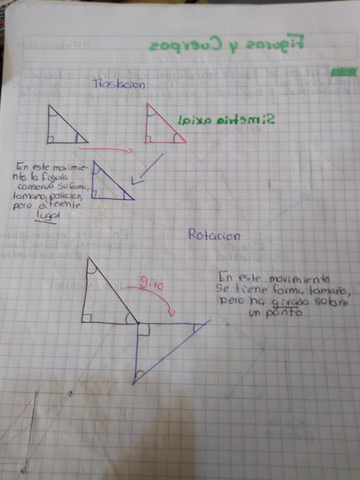 Figuras y Cuerpos
Traslacion
Simetria axial
En este movimie-
nto la figura
conserva su forma,
tamaño, posicion,
pero diferente
lugar
Rotacion
giro
En este movimiento
se tiene forma, tamaño,
pero ha girado sobre
un punto